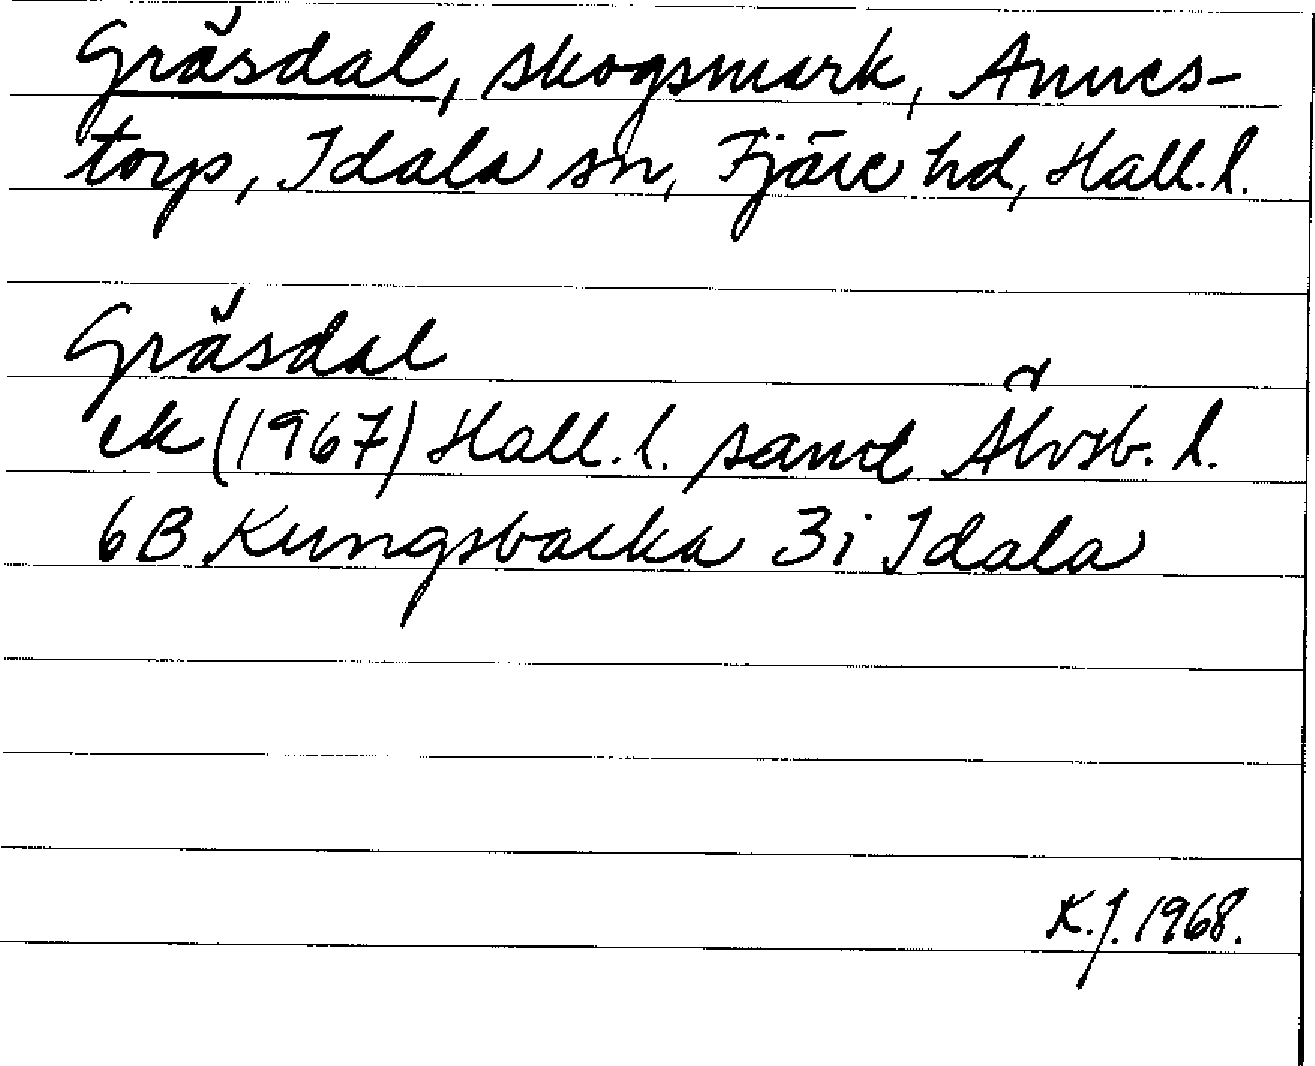 Gräsdal, skogsmark, Annes-
torp, Idala sn, Fjäre hd, Hall. l.
Gräsdal
ek (1967) Hall. l. samt Älvsb. l.
6B Kungsbacka 3i Idala
K.J. 1968.